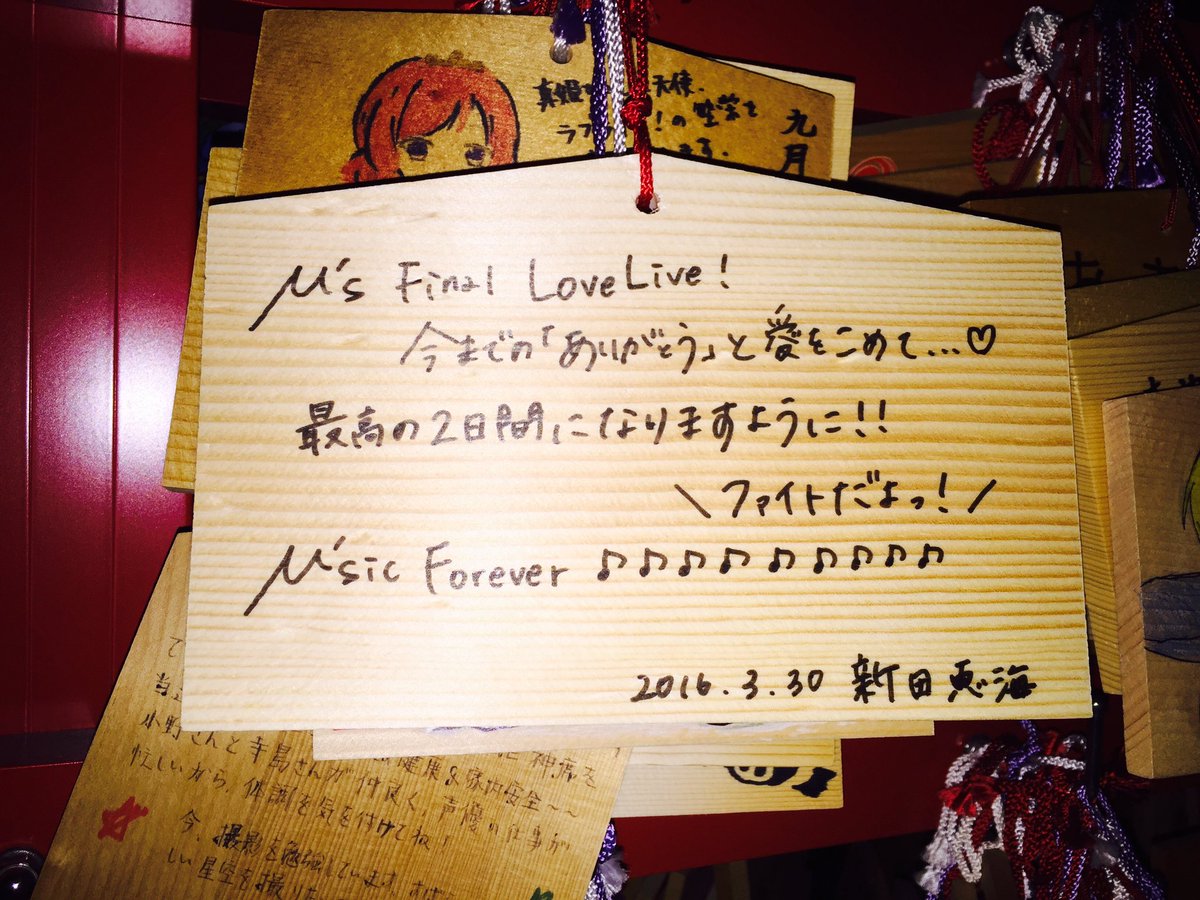 真姫
天使、
ラブ
！の
九月
μ's Final LoveLive!
今までの「ありがとう」と愛をこめて…♡
最高の2日間になりますように!!
＼ファイトだよっ!／
μ'sic Forever ♪♪♪♪♪♪♪♪♪
2016.3.30 新田恵海
小野さんと寺島さんが仲良く、声優の仕事が
忙しいから、体調を気を付けてね！
健康&家内安全〜〜
今、撮影を勉強しています。
しい星空を撮り